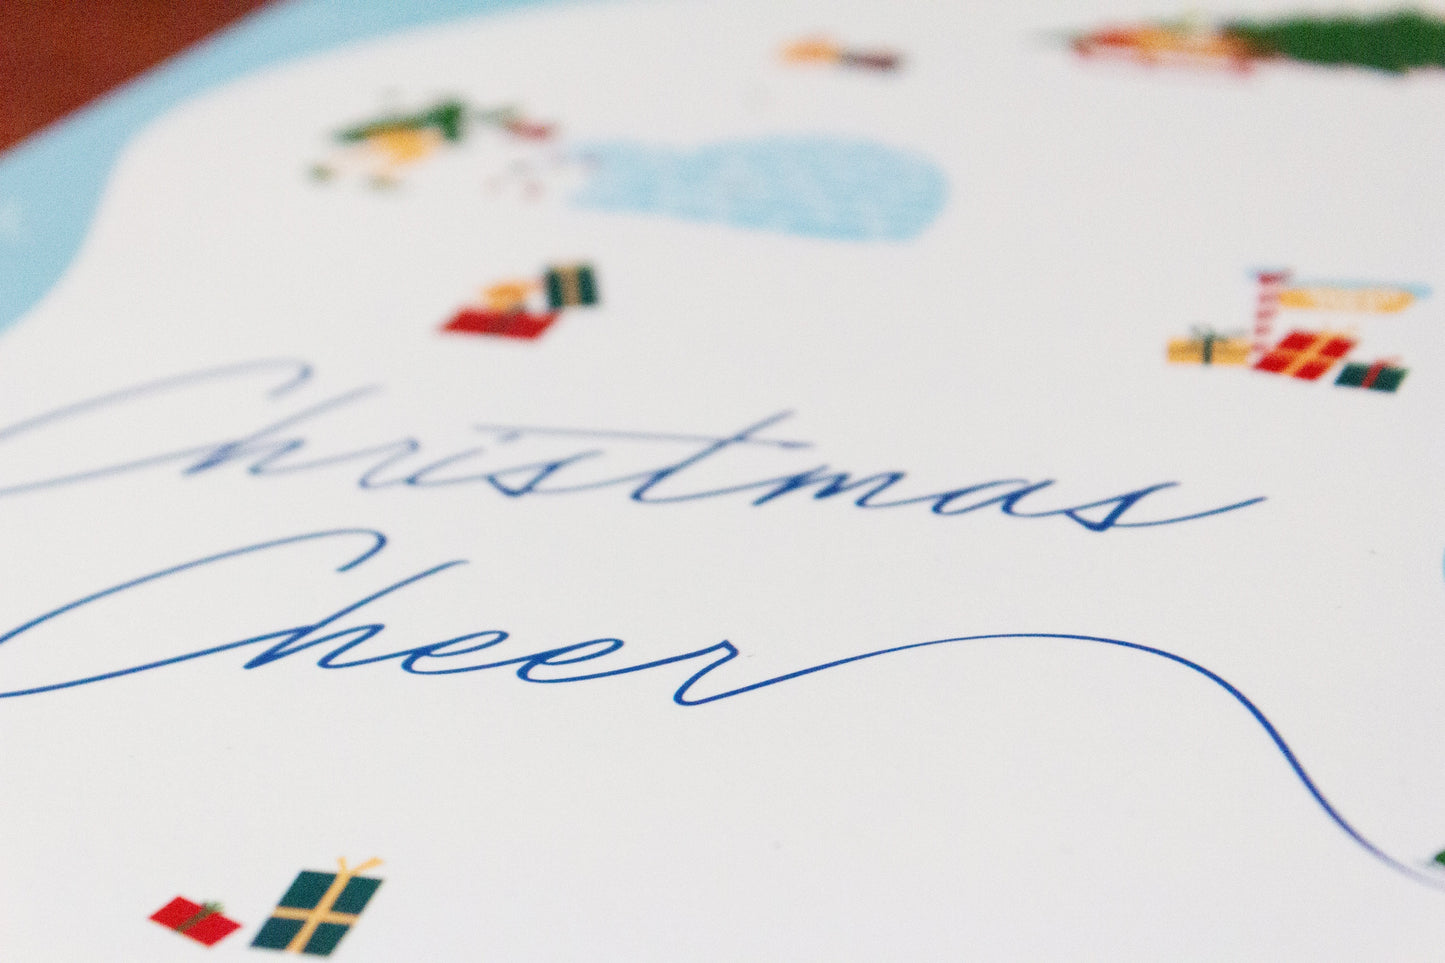 Christmas
Cheer